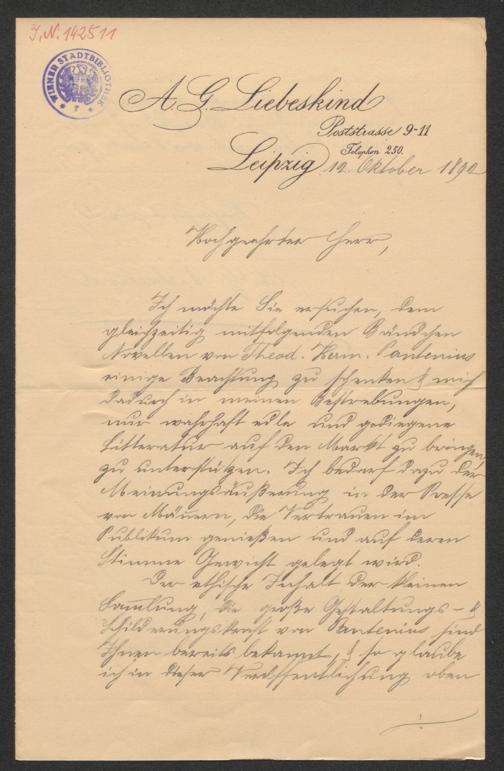 J.N. 142511
WIENER STADTBIBLIOTHEK
A. G. Liebeskind
Poststrasse 9-11
Telephon 250.
Leipzig 12. Oktober 1892
Hochgeehrter Herr,
Ich möchte Sie ersuchen, dem
gleichzeitig mitfolgenden Bändchen
Novellen von Theod. Herm. Pantenius
einige Beachtung zu schenken & mich
dadurch in meinen Bestrebungen,
nur wahrhaft edle und gediegene
Litteratur auf den Markt zu bringen,
zu unterstützen. Ich bedarf dazu der
Meinungsäußerung in der Presse
von Männern, die Vertrauen im
Publikum genießen und auf deren
Stimme Gewicht gelegt wird.
Der ethische Inhalt der kleinen
Sammlung, die große Gestaltungs- &
Schilderungskraft von Pantenius sind
Ihnen bereits bekannt, & so glaube
ich in dieser Veröffentlichung eben